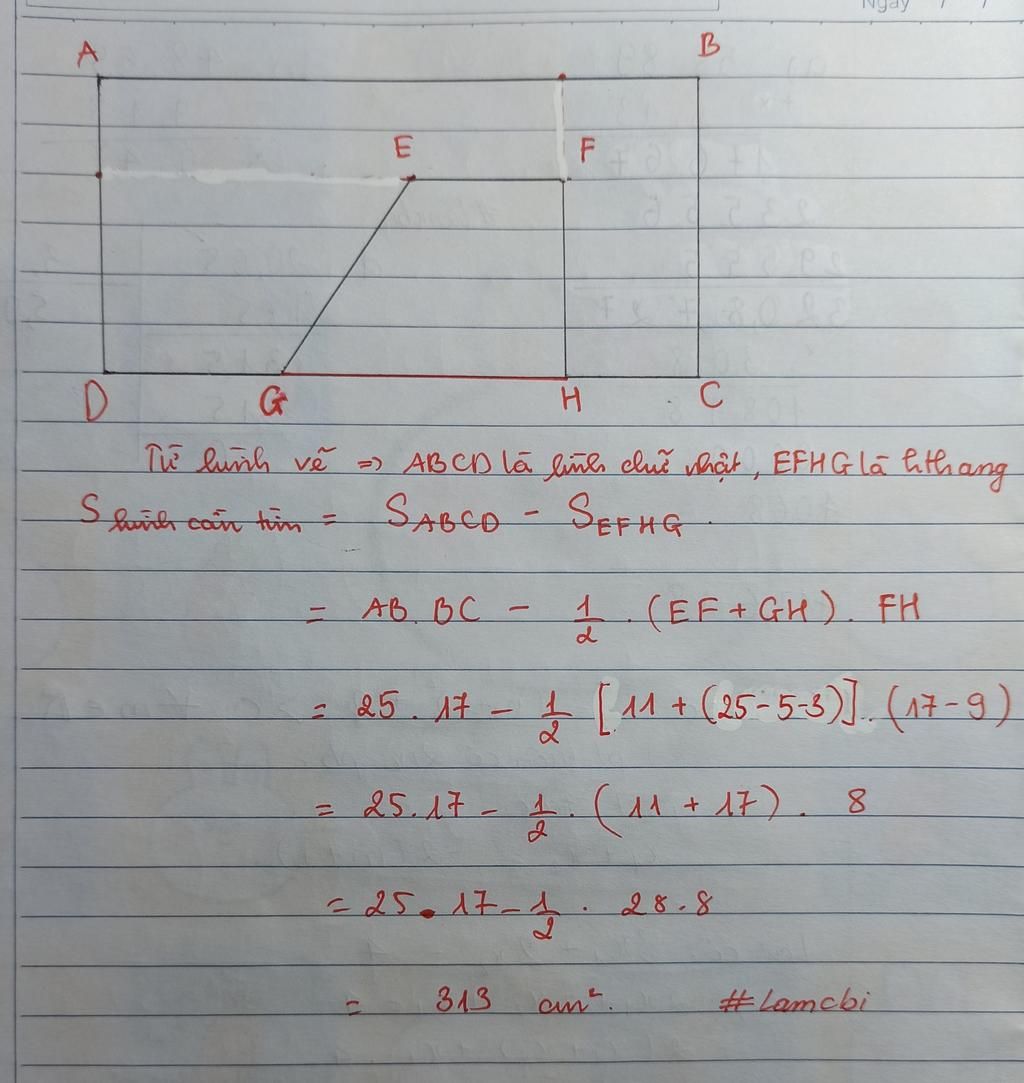 Ngày / /
A B
E F
D G H C
Từ hình vẽ => ABCD là hình chữ nhật, EFHG là hthang
S hình cần tìm = SABCD - SEFHG.
= AB. BC - 1/2 . (EF + GH). FH
= 25.17 - 1/2 [11 + (25-5-3)].(17-9)
= 25.17 - 1/2 . (11 + 17). 8
= 25.17 - 1/2 . 28.8
= 313 cm². #Lamcbi